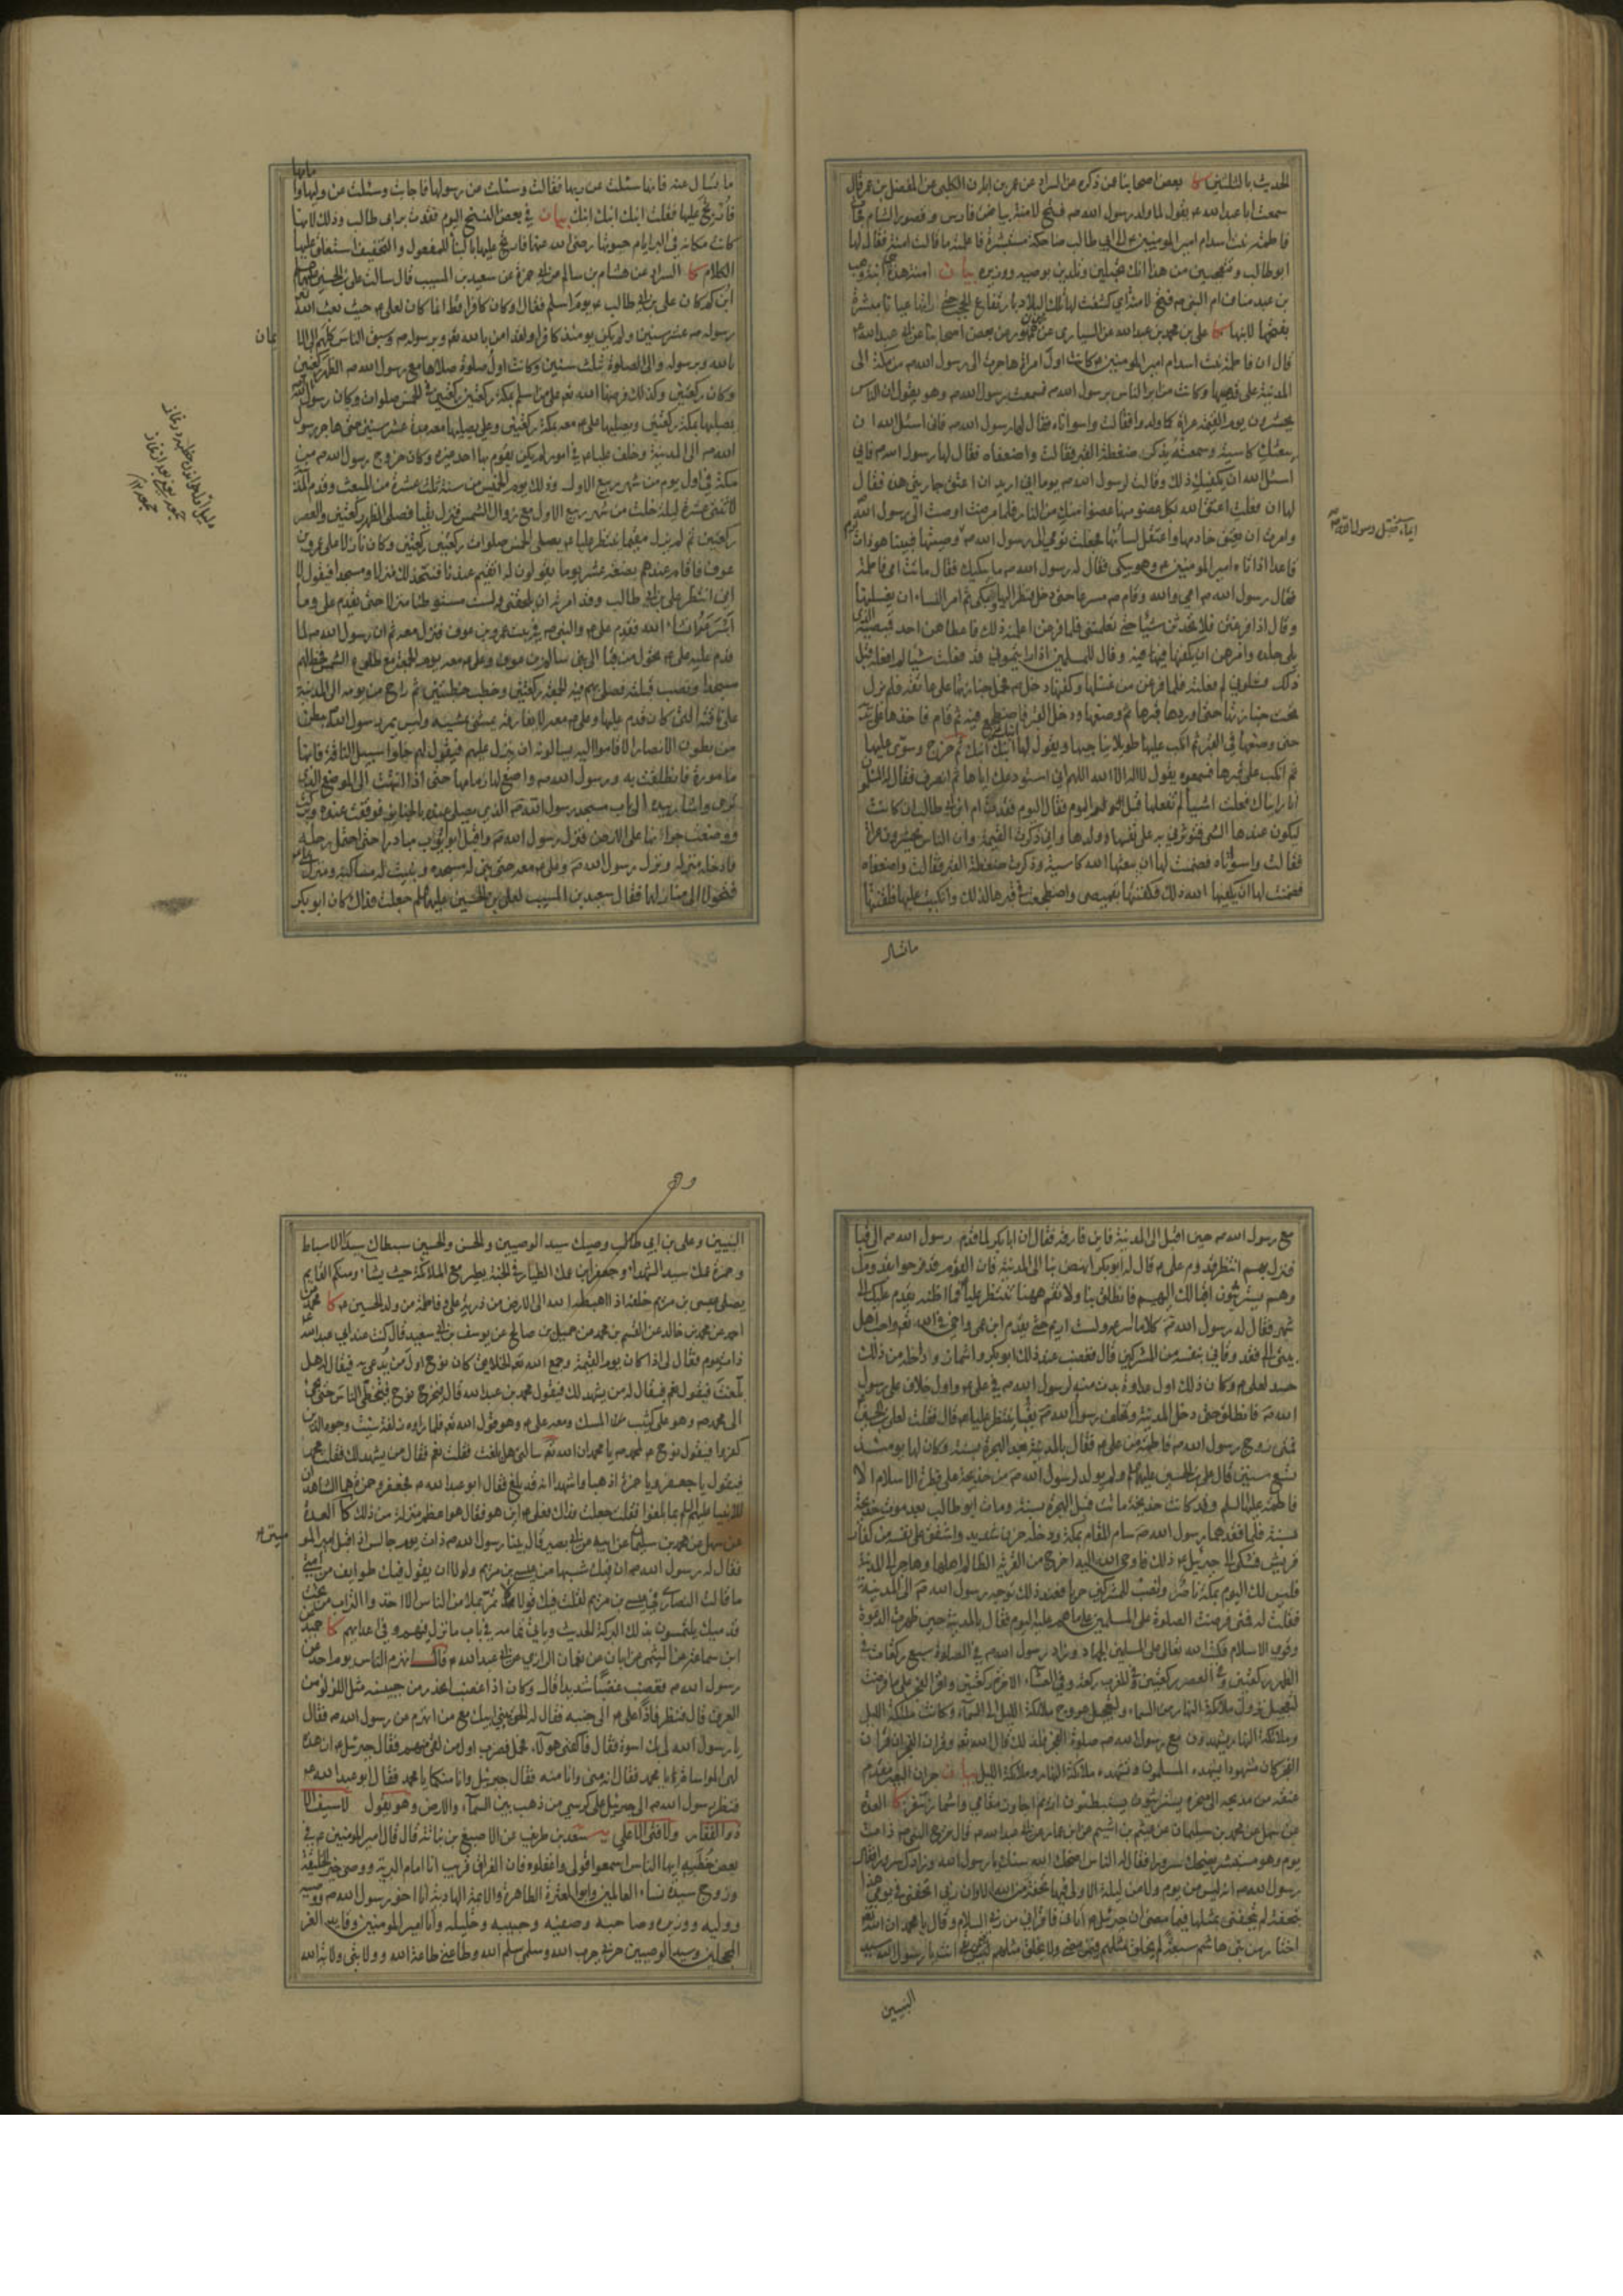 الحديث بالثلثين كا بعض اصحابنا عمن ذكره عن السراد عن عمر بن ابان الكلبي عن المفضل بن عمر قال
سمعت ابا عبد الله ع يقول لما ولد رسول الله ص فتح لامنة بياض فارس و قصور الشام فجائت
فاطمة بنت اسد ام امير المومنين ع الى ابي طالب ضاحكة مستبشرة فاعلمته ما قالت امنة فقال لها
ابو طالب و تتعجبين من هذا انك تحبلين وتلدين بوصيه ووزيره بيان امنة هذه ابنة وهب
بن عبد مناف ام النبي ص فتح لامنة اي كشفت لها تلك البلاد بارتفاع الحجب حتى راتها عيانا مبشرة
بفتحها لابنها كا علي بن محمد بن عبد الله عن السياري عن محمد بن جمهور عن بعض اصحابنا عن ابي عبد الله ع
قال ان فاطمة بنت اسد ام امير المومنين ع كانت اول امراة هاجرت الى رسول الله ص من مكة الى
المدينة على قدميها وكانت من ابر الناس برسول الله ص فسمعت رسول الله ص وهو يقول ان الناس
يحشرون يوم القيمة عراة كما ولدوا فقالت واسواتاه فقال لها رسول الله ص فاني اسئل الله ان
يبعثك كاسية وسمعته يذكر ضغطة القبر فقالت واضعفاه فقال لها رسول الله ص فاني
اسئل الله ان يكفيك ذلك وقالت لرسول الله ص يوما اني اريد ان اعتق جاريتي هذه فقال
لها ان فعلت اعتق الله بكل عضو منها عضوا منك من النار فلما مرضت اوصت الى رسول الله ص
وامرت ان يعتق خادمها واعتقل لسانها فجعلت تومي الى رسول الله ص وصيتها فبينما هو ذات يوم
قاعد اذ اتاه امير المومنين ع وهو يبكي فقال له رسول الله ص ما يبكيك فقال ماتت امي فاطمة
فقال رسول الله ص امي والله وقام ص مسرعا حتى دخل فنظر اليها وبكى ثم امر النساء ان يغسلنها
وقال اذا فرغتن فلا تحدثن شيئا حتى تعلمنني فلما فرغن اعلمنه ذلك فاعطاهن احد قميصيه الذي
يلي جلده وامرهن ان يكفنها فيه وقال للمسلمين اذا رايتموني قد فعلت شيئا لم افعله قبل
ذلك فسلوني لم فعلته فلما فرغن من غسلها وكفنها دخل ص فحمل جنازتها على عاتقه فلم يزل
تحت جنازتها حتى اوردها قبرها ثم وضعها ودخل القبر فاضطجع فيه ثم قام فاخذها على يديه
حتى وضعها في القبر ثم انكب عليها طويلا يناجيها ويقول لها ابنك ابنك ثم خرج وسوى عليها
ثم انكب على قبرها فسمعوه يقول لا اله الا الله اللهم اني استودعك اياها ثم انصرف فقال له المسلمون
انا رايناك فعلت اشياء لم تفعلها قبل اليوم فقال اليوم فقدت بر ابي طالب ان كانت
ليكون عندها الشيء فتؤثرني به على نفسها وولدها واني ذكرت القيمة وان الناس يحشرون عراة
فقالت واسواتاه فضمنت لها ان يبعثها الله كاسية وذكرت ضغطة القبر فقالت واضعفاه
فضمنت لها ان يكفيها الله ذلك فكفنتها بقميصي واضطجعت في قبرها لذلك وانكببت عليها فلقنتها
ما تسال
ما تسال عنه فانها سئلت عن ربها فقالت وسئلت عن رسولها فاجابت وسئلت عن وليها وامامها
فارتج عليها فقلت ابنك ابنك ابنك بيان في بعض النسخ اليوم فقدت بر ابي طالب وذلك لانها
الكلام كا السراد عن هشام بن سالم عن ابي حمزة عن سعيد بن المسيب قال سالت علي بن الحسين ع
ابن كم كان علي بن ابي طالب ع يوم اسلم فقال او كان كافرا قط انما كان لعلي ع حيث بعث الله
رسوله ص عشر سنين ولم يكن يومئذ كافرا ولقد امن بالله تع وبرسوله ص وسبق الناس كلهم الى الايمان
بالله وبرسوله والى الصلوة بثلث سنين وكانت اول صلوة صلاها مع رسول الله ص الظهر ركعتين
وكان ركعتين وكذلك فرضها الله تع على من اسلم بمكة ركعتين ركعتين في الخمس صلوات وكان رسول الله ص
يصليها بمكة ركعتين ويصليها علي ع معه بمكة ركعتين وعلي يصليها معه مدة عشر سنين حتى هاجر رسول
الله ص الى المدينة وخلف عليا ع في امور لم يكن يقوم بها احد غيره وكان خروج رسول الله ص من
مكة في اول يوم من شهر ربيع الاول وذلك يوم الخميس من سنة ثلث عشرة من المبعث وقدم المدينة
لاثنتي عشرة ليلة خلت من شهر ربيع الاول مع زوال الشمس فنزل بقبا فصلى الظهر ركعتين والعصر
ركعتين ثم لم يزل مقيما ينتظر عليا ع يصلي الخمس صلوات ركعتين ركعتين وكان نازلا على عمرو بن
عوف فاقام عندهم بضعة عشر يوما يقولون له اتقيم عندنا فنتخذ لك منزلا ومسجدا فيقول لا
اني انتظر علي بن ابي طالب وقد امرته ان يلحقني ولست مستوطنا منزلا حتى يقدم علي وما
اسرعه ان شاء الله فقدم علي ع والنبي ص في بيت عمرو بن عوف فنزل معه ثم ان رسول الله ص لما
قدم عليه علي ع تحول من قبا الى بني سالم بن عوف وعلي ع معه يوم الجمعة مع طلوع الشمس فخط لهم
مسجدا ونصب قبلته فصلى بهم فيه الجمعة ركعتين وخطب خطبتين ثم راح من يومه الى المدينة
على ناقته التي كان قدم عليها وعلي ع معه لا يفارقه يمشي بمشيه وليس يمر رسول الله ص ببطن
من بطون الانصار الا قاموا اليه يسالونه ان ينزل عليهم فيقول لهم خلوا سبيل الناقة فانها
مامورة فانطلقت به ورسول الله ص واضع لها زمامها حتى اذا انتهت الى الموضع الذي
ترى واشار بيده الى باب مسجد رسول الله ص الذي يصلى عنده بالجنايز فوقفت عنده وبركت
ووضعت جرانها على الارض فنزل رسول الله ص واقبل ابو ايوب مبادرا حتى احتمل رحله
وادخله منزله ونزل رسول الله ص وعلي ع معه حتى بنى له مسجده وبنيت له مساكنه ومنزل علي ع
فتحولا الى منازلهما فقال سعيد بن المسيب لعلي بن الحسين عليهما السلم جعلت فداك كان ابو بكر
مع رسول الله ص حين اقبل الى المدينة فاين فارقه فقال ان ابا بكر لما قدم رسول الله ص الى قبا
فنزل بهم انتظر قدوم علي ع قال له ابو بكر انهض بنا الى المدينة فان القوم قد فرحوا بقدومك
وهم يستريثون اقبالك اليهم فانطلق بنا ولا تقم ههنا تنتظر عليا فما اظنه يقدم عليك الى
شهر فقال له رسول الله ص كلا ما اسرعه ولست اريم حتى يقدم ابن عمي واخي في الله تع واحب اهل
بيتي الى فقد وقاني بنفسه من المشركين قال فغضب عند ذلك ابو بكر واشماز وداخله من ذلك
حسد لعلي ع وكان ذلك اول عداوة بدت منه لرسول الله ص في علي ع واول خلاف على رسول
الله ص فانطلق حتى دخل المدينة وتخلف رسول الله ص بقبا ينتظر عليا ع قال فقلت لعلي بن الحسين ع
فمتى زوج رسول الله ص فاطمة من علي ع فقال بالمدينة بعد الهجرة بسنة وكان لها يومئذ
تسع سنين قال علي بن الحسين عليهما السلم ولم يولد لرسول الله ص من خديجة على فطرة الاسلام الا
فاطمة عليها السلم وقد كانت خديجة ماتت قبل الهجرة بسنة ومات ابو طالب بعد موت خديجة
بسنة فلما فقدهما رسول الله ص سام المقام بمكة ودخله حزن شديد واشفق على نفسه من كفار
قريش فشكى الى جبرئيل ع ذلك فاوحى الله اليه اخرج من القرية الظالم اهلها وهاجر الى المدينة
فليس لك اليوم بمكة ناصر وانصب للمشركين حربا فعند ذلك توجه رسول الله ص الى المدينة
فقلت له فمتى فرضت الصلوة على المسلمين على ما هم عليه اليوم فقال بالمدينة حين ظهرت الدعوة
وقوي الاسلام فكتب الله تعالى على المسلمين الجهاد وزاد رسول الله ص في الصلوة سبع ركعات في
الظهر ركعتين وفي العصر ركعتين وفي المغرب ركعة وفي العشاء الاخرة ركعتين واقر الفجر على ما فرضت
لتعجيل نزول ملائكة النهار من السماء ولتعجيل عروج ملائكة الليل الى السماء وكانت ملائكة الليل
وملائكة النهار يشهدون مع رسول الله ص صلوة الفجر فلذلك قال الله تع وقران الفجر ان قران
الفجر كان مشهودا يشهده المسلمون وتشهده ملائكة النهار وملائكة الليل بيان جران البعير مقدم
عنقه من مذبحه الى منحره يستريثون يستبطئون اريم اجاوز مقامي واشماز تنفر كا العدة
عن سهل عن محمد بن سليمان عن هيثم بن اشيم عن ابن عمار عن ابي عبد الله ع قال خرج النبي ص ذات
يوم وهو مستبشر يضحك سرورا فقال له الناس اضحك الله سنك يا رسول الله وزادك سرورا فقال
رسول الله ص انه ليس من يوم ولا من ليلة الا ولي فيهما تحفة من الله الا وان ربي اتحفني في يومي هذا
بتحفة لم يتحفني بمثلها فيما مضى ان جبرئيل ع اتاني فاقراني من ربي السلام وقال يا محمد ان الله تع
اختار من بني هاشم سبعة لم يخلق مثلهم فيمن مضى ولا يخلق مثلهم فيمن بقي انت يا رسول الله سيد
النبيين
النبيين وعلي بن ابي طالب وصيك سيد الوصيين والحسن والحسين سبطاك سيدا الاسباط
وحمزة عمك سيد الشهداء وجعفر ابن عمك الطيار في الجنة يطير مع الملائكة حيث يشاء ومنكم القايم
يصلي عيسى بن مريم خلفه اذا اهبطه الله الى الارض من ذرية علي وفاطمة من ولد الحسين ع كا محمد عن
احمد عن محمد بن خالد عن القسم بن محمد عن جميل بن صالح عن يوسف بن ابي سعيد قال كنت عند ابي عبد الله ع
ذات يوم فقال لي اذا كان يوم القيمة وجمع الله تع الخلايق كان نوح اول من يدعى به فيقال له هل
بلغت فيقول نعم فيقال له من يشهد لك فيقول محمد بن عبد الله قال فيخرج نوح فيتخطى الناس حتى يجئ
الى محمد ص وهو على كثيب من المسك ومعه علي ع وهو قول الله تع فلما راوه زلفة سيئت وجوه الذين
كفروا فيقول نوح ع لمحمد ص يا محمد ان الله تع سالني هل بلغت فقلت نعم فقال من يشهد لك فقلت محمد
فيقول يا جعفر ويا حمزة اذهبا واشهدا انه قد بلغ فقال ابو عبد الله ع فجعفر وحمزة هما الشاهدان
للانبيا عليهم السلم بما بلغوا فقلت جعلت فداك فعلي ع اين هو فقال هو اعظم منزلة من ذلك كا العدة
عن سهل عن محمد بن سليمان عن ابيه عن ابي بصير قال بينا رسول الله ص ذات يوم جالس اذ اقبل امير المومنين ع
فقال له رسول الله ص ان فيك شبها من عيسى بن مريم ولولا ان يقول فيك طوايف من امتي
ما قالت النصارى في عيسى بن مريم لقلت فيك قولا لا تمر بملاء من الناس الا اخذوا التراب من تحت
قدميك يلتمسون بذلك البركة الحديث وياتي تمامه في باب ما نزل فيهم وفي اعدائهم كا حميد عن
ابن سماعة عن الميثمي عن ابان عن نعمان الرازي عن ابي عبد الله ع قال انهزم الناس يوم احد عن
رسول الله ص فغضب غضبا شديدا قال وكان اذا غضب انحدر من جبينه مثل اللؤلؤ من
العرق قال فنظر فاذا علي ع الى جنبه فقال له الحق ببني ابيك مع من انهزم عن رسول الله ص فقال
يا رسول الله لي بك اسوة فقال فاكفني هؤلاء فحمل فضرب اول من لقي منهم فقال جبرئيل ع ان هذه
لهي المواساة يا محمد فقال انه مني وانا منه فقال جبرئيل وانا منكما يا محمد فقال ابو عبد الله ع
فنظر رسول الله ص الى جبرئيل على كرسي من ذهب بين السماء والارض وهو يقول لا سيف الا
ذو الفقار ولا فتى الا علي يه سعد بن طريف عن الاصبغ بن نباتة قال قال امير المومنين ع في
بعض خطبه ايها الناس اسمعوا قولي واعقلوه فان الفراق قريب انا امام البرية ووصي خير الخليقة
وزوج سيدة نساء العالمين وابو العترة الطاهرة والائمة الهادية انا اخو رسول الله ص ووصيه
ووليه ووزيره وصاحبه وصفيه وحبيبه وخليله وانا امير المومنين وقايد الغر
المحجلين وسيد الوصيين حربي حرب الله وسلمي سلم الله وطاعتي طاعة الله وولايتي ولاية الله